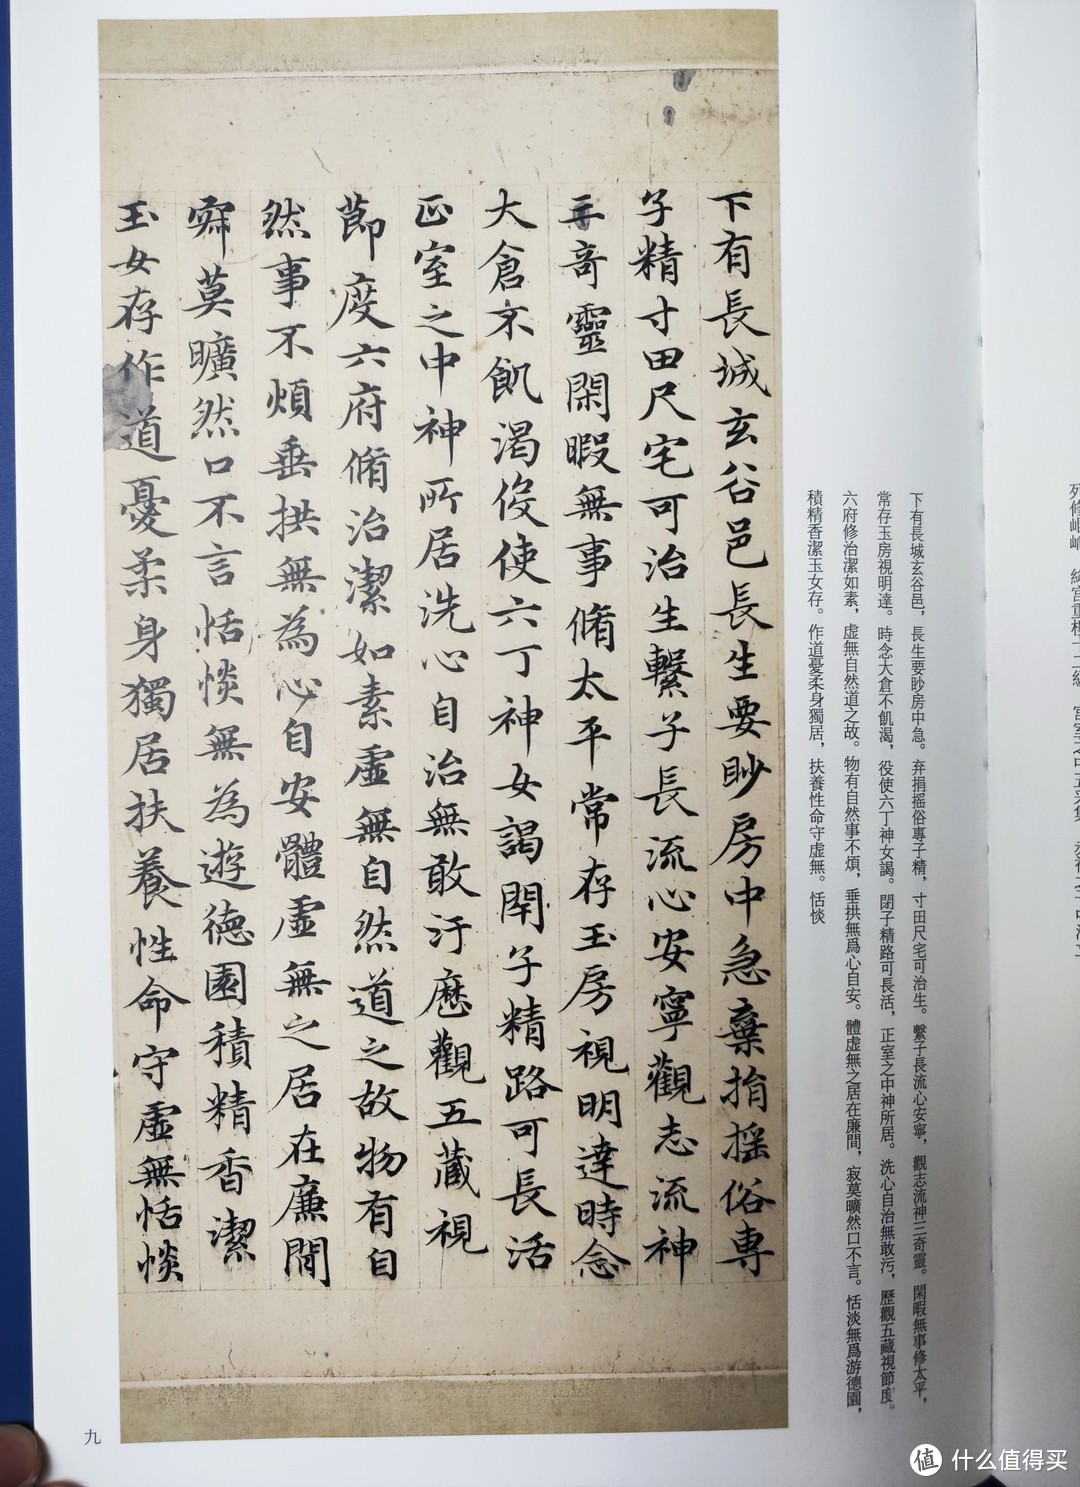 下有長城玄谷邑，長生要眇房中急。弃捐摇俗專子精，寸田尺宅可治生。繫子長流心安寧，觀志流神三奇靈。閑暇無事修太平，
常存玉房視明達。時念大倉不飢渴，役使六丁神女謁。閉子精路可長活，正室之中神所居。洗心自治無敢污，歷觀五藏視節度。
六府修治潔如素，虛無自然道之故。物有自然事不煩，垂拱無爲心自安。體虛無之居在廉間，寂莫曠然口不言。恬淡無爲游德園，
積精香潔玉女存。作道憂柔身獨居，扶養性命守虛無。恬惔
下有長城玄谷邑長生要眇房中急棄捐摇俗專
子精寸田尺宅可治生繫子長流心安寧觀志流神
三奇靈閑暇無事脩太平常存玉房視明達時念
大倉不飢渴役使六丁神女謁閇子精路可長活
正室之中神所居洗心自治無敢汙歷觀五藏視
節度六府脩治潔如素虛無自然道之故物有自
然事不煩垂拱無為心自安體虛無之居在廉間
寂莫曠然口不言恬惔無為遊德園積精香潔
玉女存作道憂柔身獨居扶養性命守虛無恬惔
九
值 什么值得买